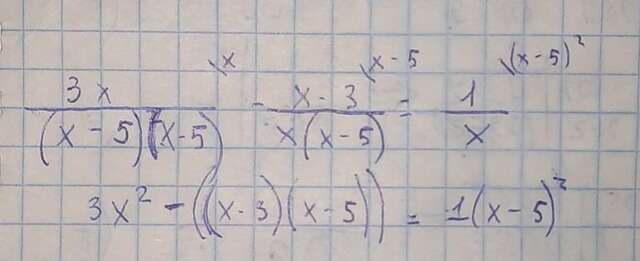 3x/((x-5)(x-5)) \x - (x-3)/(x(x-5)) \x-5 = 1/x \(x-5)²
3x² - ((x-3)(x-5)) = 1(x-5)²